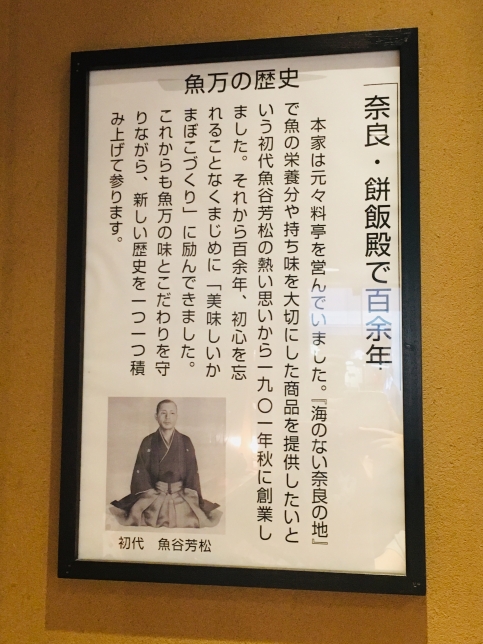 魚万の歴史
「奈良・餅飯殿で百余年
本家は元々料亭を営んでいました。『海のない奈良の地』
で魚の栄養分や持ち味を大切にした商品を提供したいと
いう初代魚谷芳松の熱い思いから一九〇一年秋に創業し
ました。それから百余年、初心を忘
れることなくまじめに「美味しいか
まぼこづくり」に励んできました。
これからも魚万の味とこだわりを守
りながら、新しい歴史を一つ一つ積
み上げて参ります。
初代 魚谷芳松